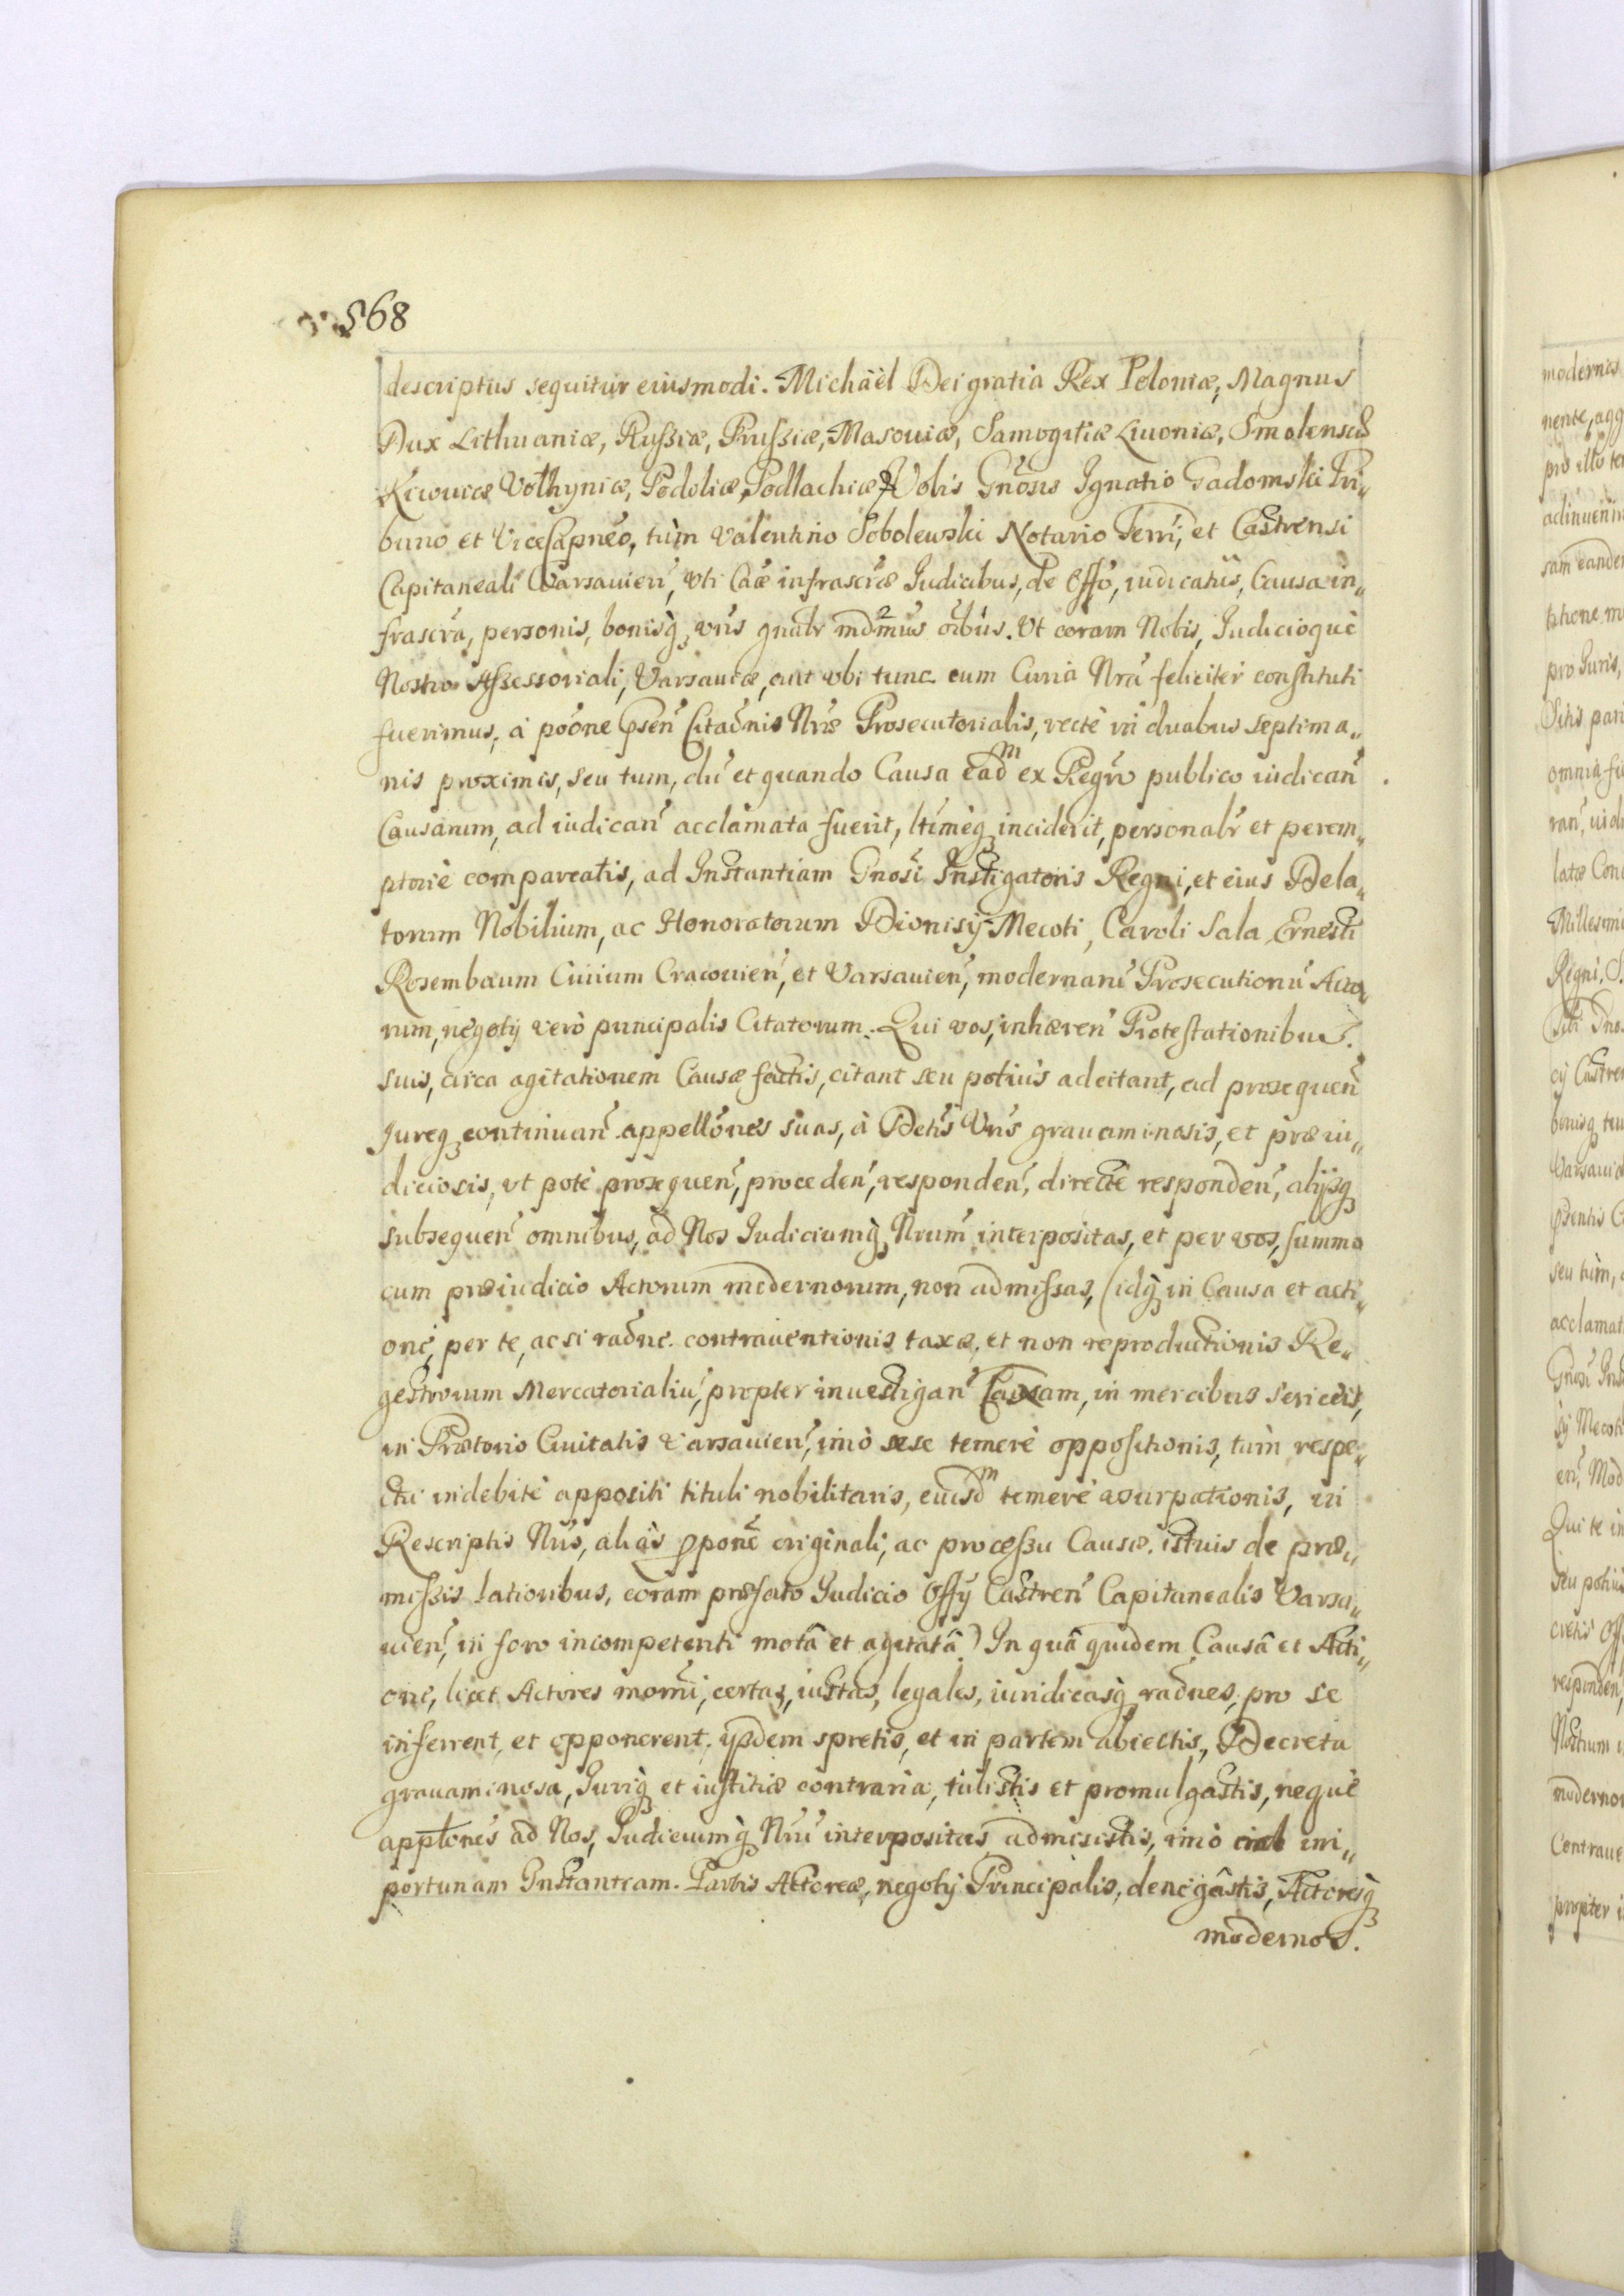 568
descriptus sequitur eiusmodi. Michaël Dei gratia Rex Poloniæ, Magnus
Dux Lithuaniæ, Russiæ, Prussiæ, Masouiæ, Samogitiæ Liuoniæ, Smolensciæ
Kiiouiæ Volhyniæ, Podoliæ, Podlachiæq Vobis Gnosis Ignatio Gadomski Tri„
buno et ViceCapneo, tùm Valentino Sobolewski Notario Terri, et Castrensi
Capitaneali Varsauien, Vti Cæ infrascræ Iudicibus, de Offo, iudicatus, Causa in„
frascra, personis, bonisq, vris gnalr mdmus oibus. Vt coram Nobis, Iudicioque
Nostro Assessoriali, Varsauiæ, aut vbi tunc cum Curia Nra feliciter constituti
fuerimus, à poone psen Citaonis Nræ Prosecutorialis, rectè in duabus septima„
nis proximis, seu tum, du et quando Causa eadm ex Regro publico iudican
Causarum, ad iudican acclamata fuerit, ltimeq inciderit, personalr et perem„
ptoriè compareatis, ad Instantiam Gnosi Instigatoris Regni, et eius Dela„
torum Nobilium, ac Honoratorum Dionisij Mecoti, Caroli Sala Ernesti
Rosembaum Ciuium Cracouien, et Varsauien, modernaru Prosecutionu Acto„
rum, negotij verò principalis Citatorum. Qui vos, inhæren Protestationibus.
suis, circa agitationem Causæ factis, citant seu potius adcitant, ad prosequen
Iureq continuan appellones suas, à Detis Vris grauaminosis, et præiu„
diciosis, vt potè prosequen, proceden, responden, directè responden, alijsq
subsequen omnibus, ad Nos Iudiciumq Nrum interpositas, et per vos, summo
cum præiudicio Actorum modernorum, non admissas, (idq in Causa et acti„
one, per te, ac si raone contrauentionis taxæ, et non reproductionis Re„
gestrorum Mercatorialiu, propter inuestigan Taxam, in mercibus sericeis,
in Prætorio Ciuitatis Varsauien, imò sese temerè oppositionis, tùm respe„
ctu indebitè appositi tituli nobilitaris, euisdm temerè asurpationis, in
Rescriptis Nris, aliàs ppone originali, ac processu Causæ istius de præ„
missis lationibus, coram præfato Iudicio Offij Castren Capitanealis Varsa„
uien, in foro incompetenti motâ et agitatâ) In quâ quidem Causâ et Acti„
one, licet Actores morni, certas, iustas, legales, iuridicasq raones, pro se
inferrent, et opponerent, ijsdem spretis, et in partem abiectis, Decreta
grauaminosa, Iuriq et iustitiæ contraria, tulistis et promulgastis, nequè
appltones ad Nos, Iudiciumq Nru interpositas admisistis, imò ad im„
portunam Instantiam Partis Actoreæ, negotij Principalis, denegâstis, Actoresq
modernos.